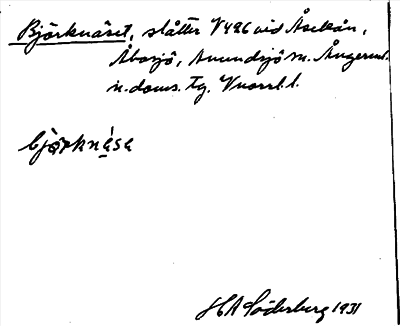 Björknäset, slåtter V426 vid Åselån,
Åbosjö, Anundsjö sn. Ångerml.
n. doms. Tg. Vnorrl. l.
bjö̤rknä́sa
H A Söderberg 1931